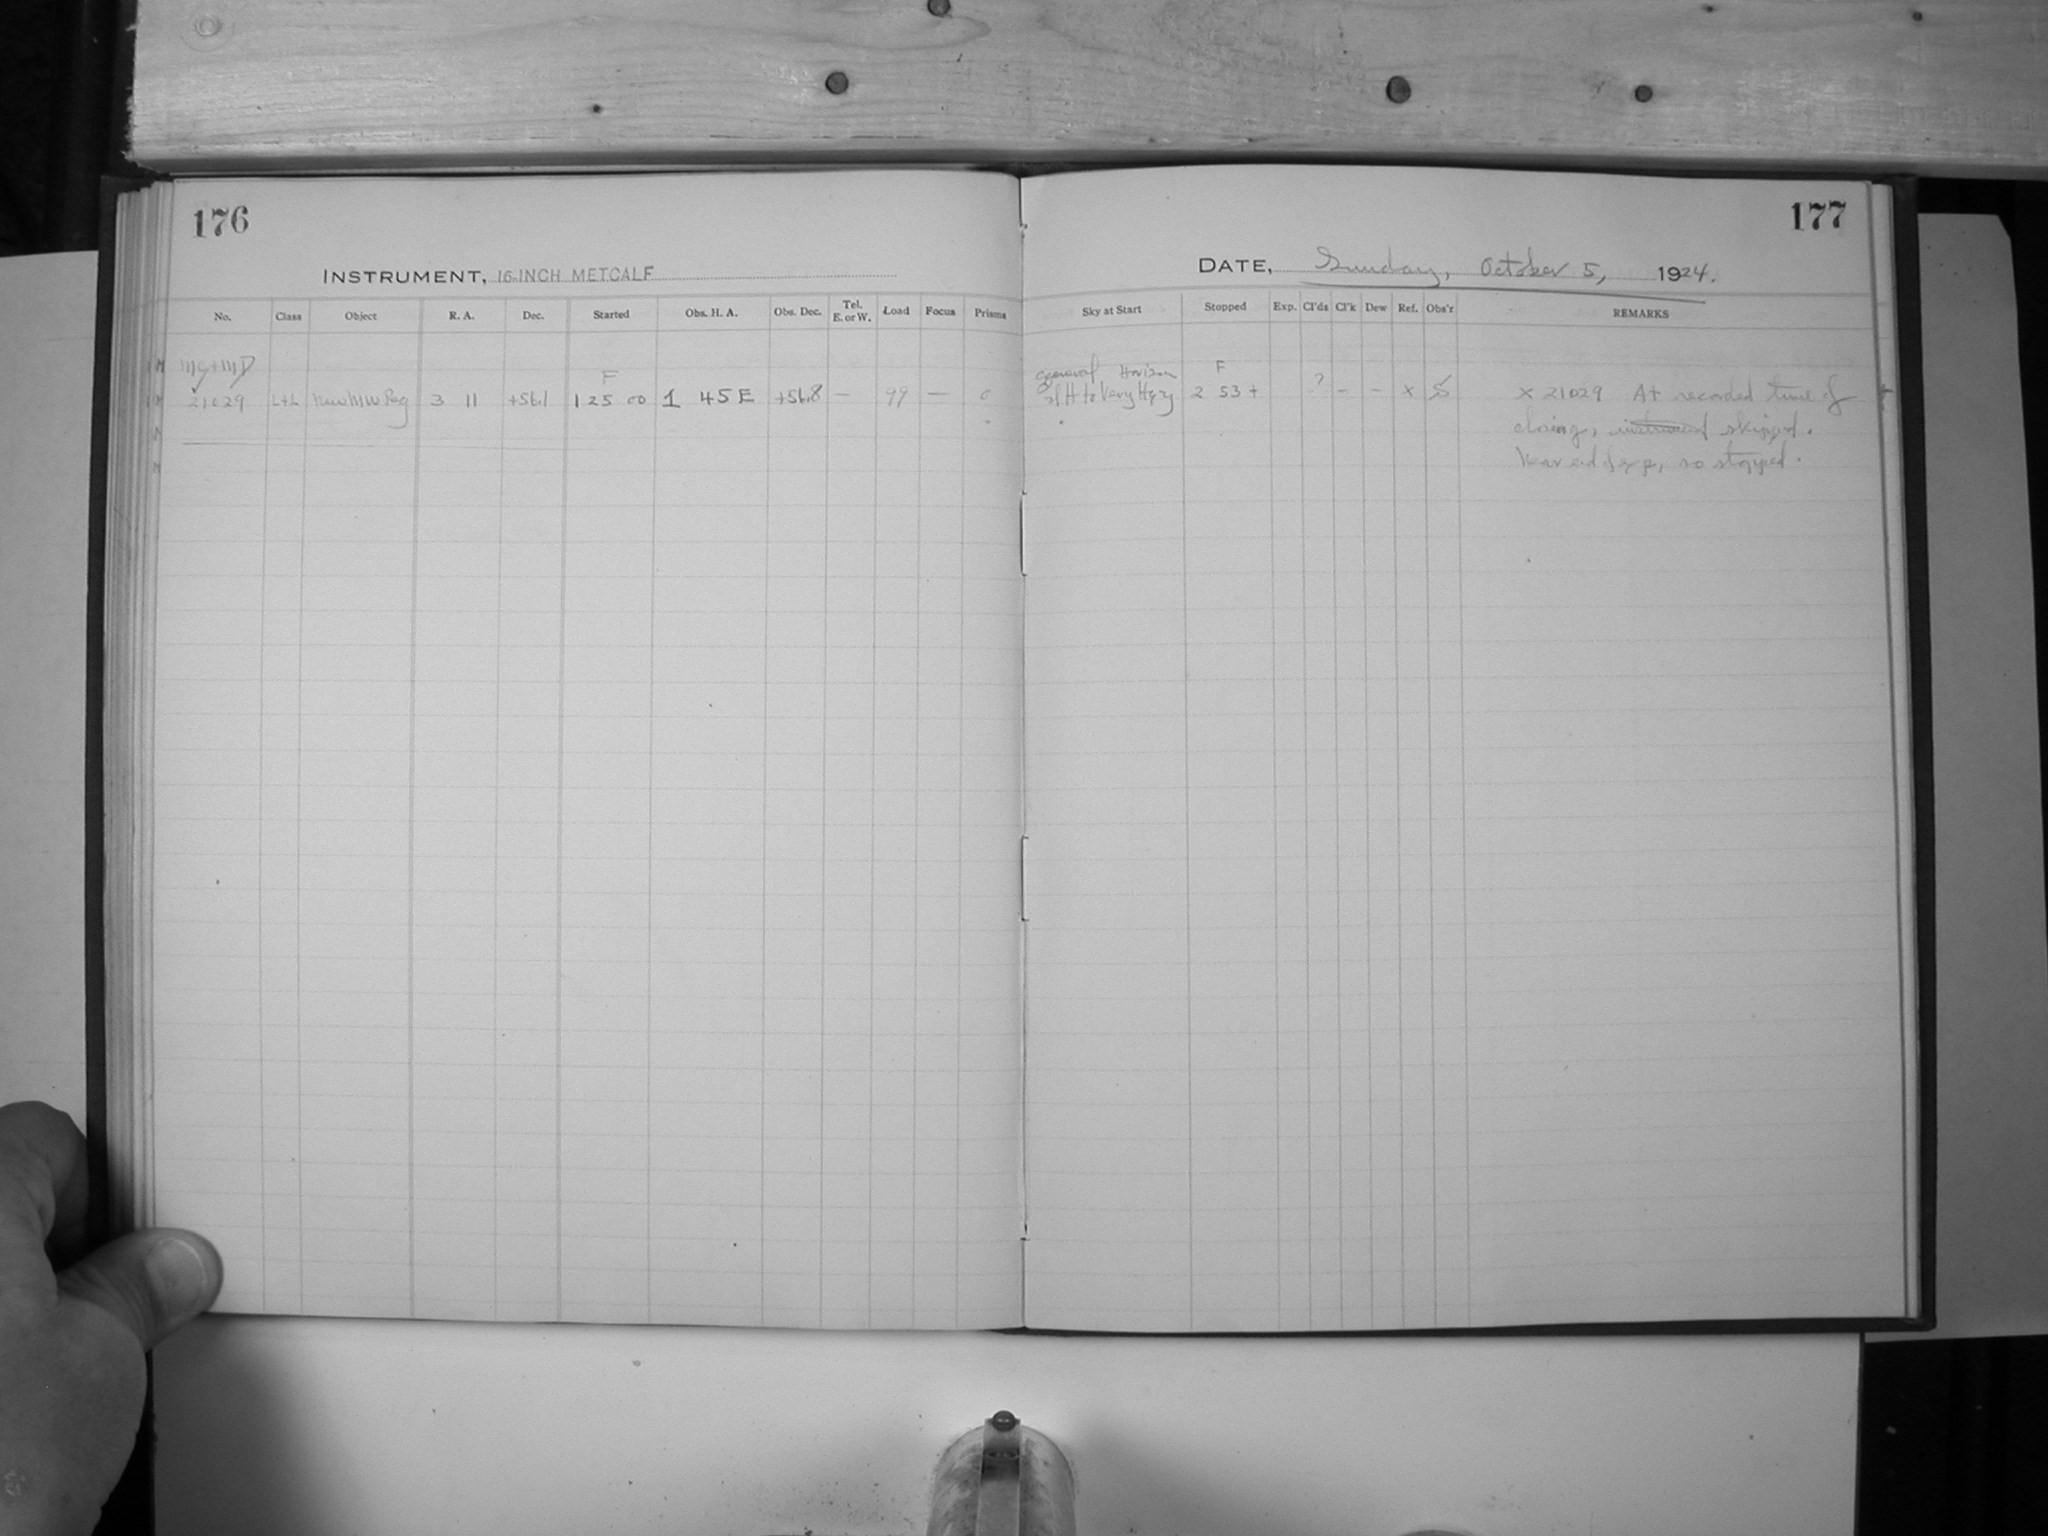 176
INSTRUMENT, 16-INCH METCALF
No. Class Object R. A. Dec. Started Obs. H. A. Obs. Dec. Tel. E. or W. Load Focus Prisms
F
21029 L+L New MW Reg 3 11 +56.1 1 25 00 1 45 E +56.8 — 99 — 0
177
DATE, Sunday, October 5, 1924.
Sky at Start Stopped Exp. Cl'ds Cl'k Dew Ref. Obs'r REMARKS
general Horizon F
Sl H to Very Hazy 2 53 + ? – – x x 21029 At recorded time of
closing, instrument skipped.
Near end of exp, so stopped.